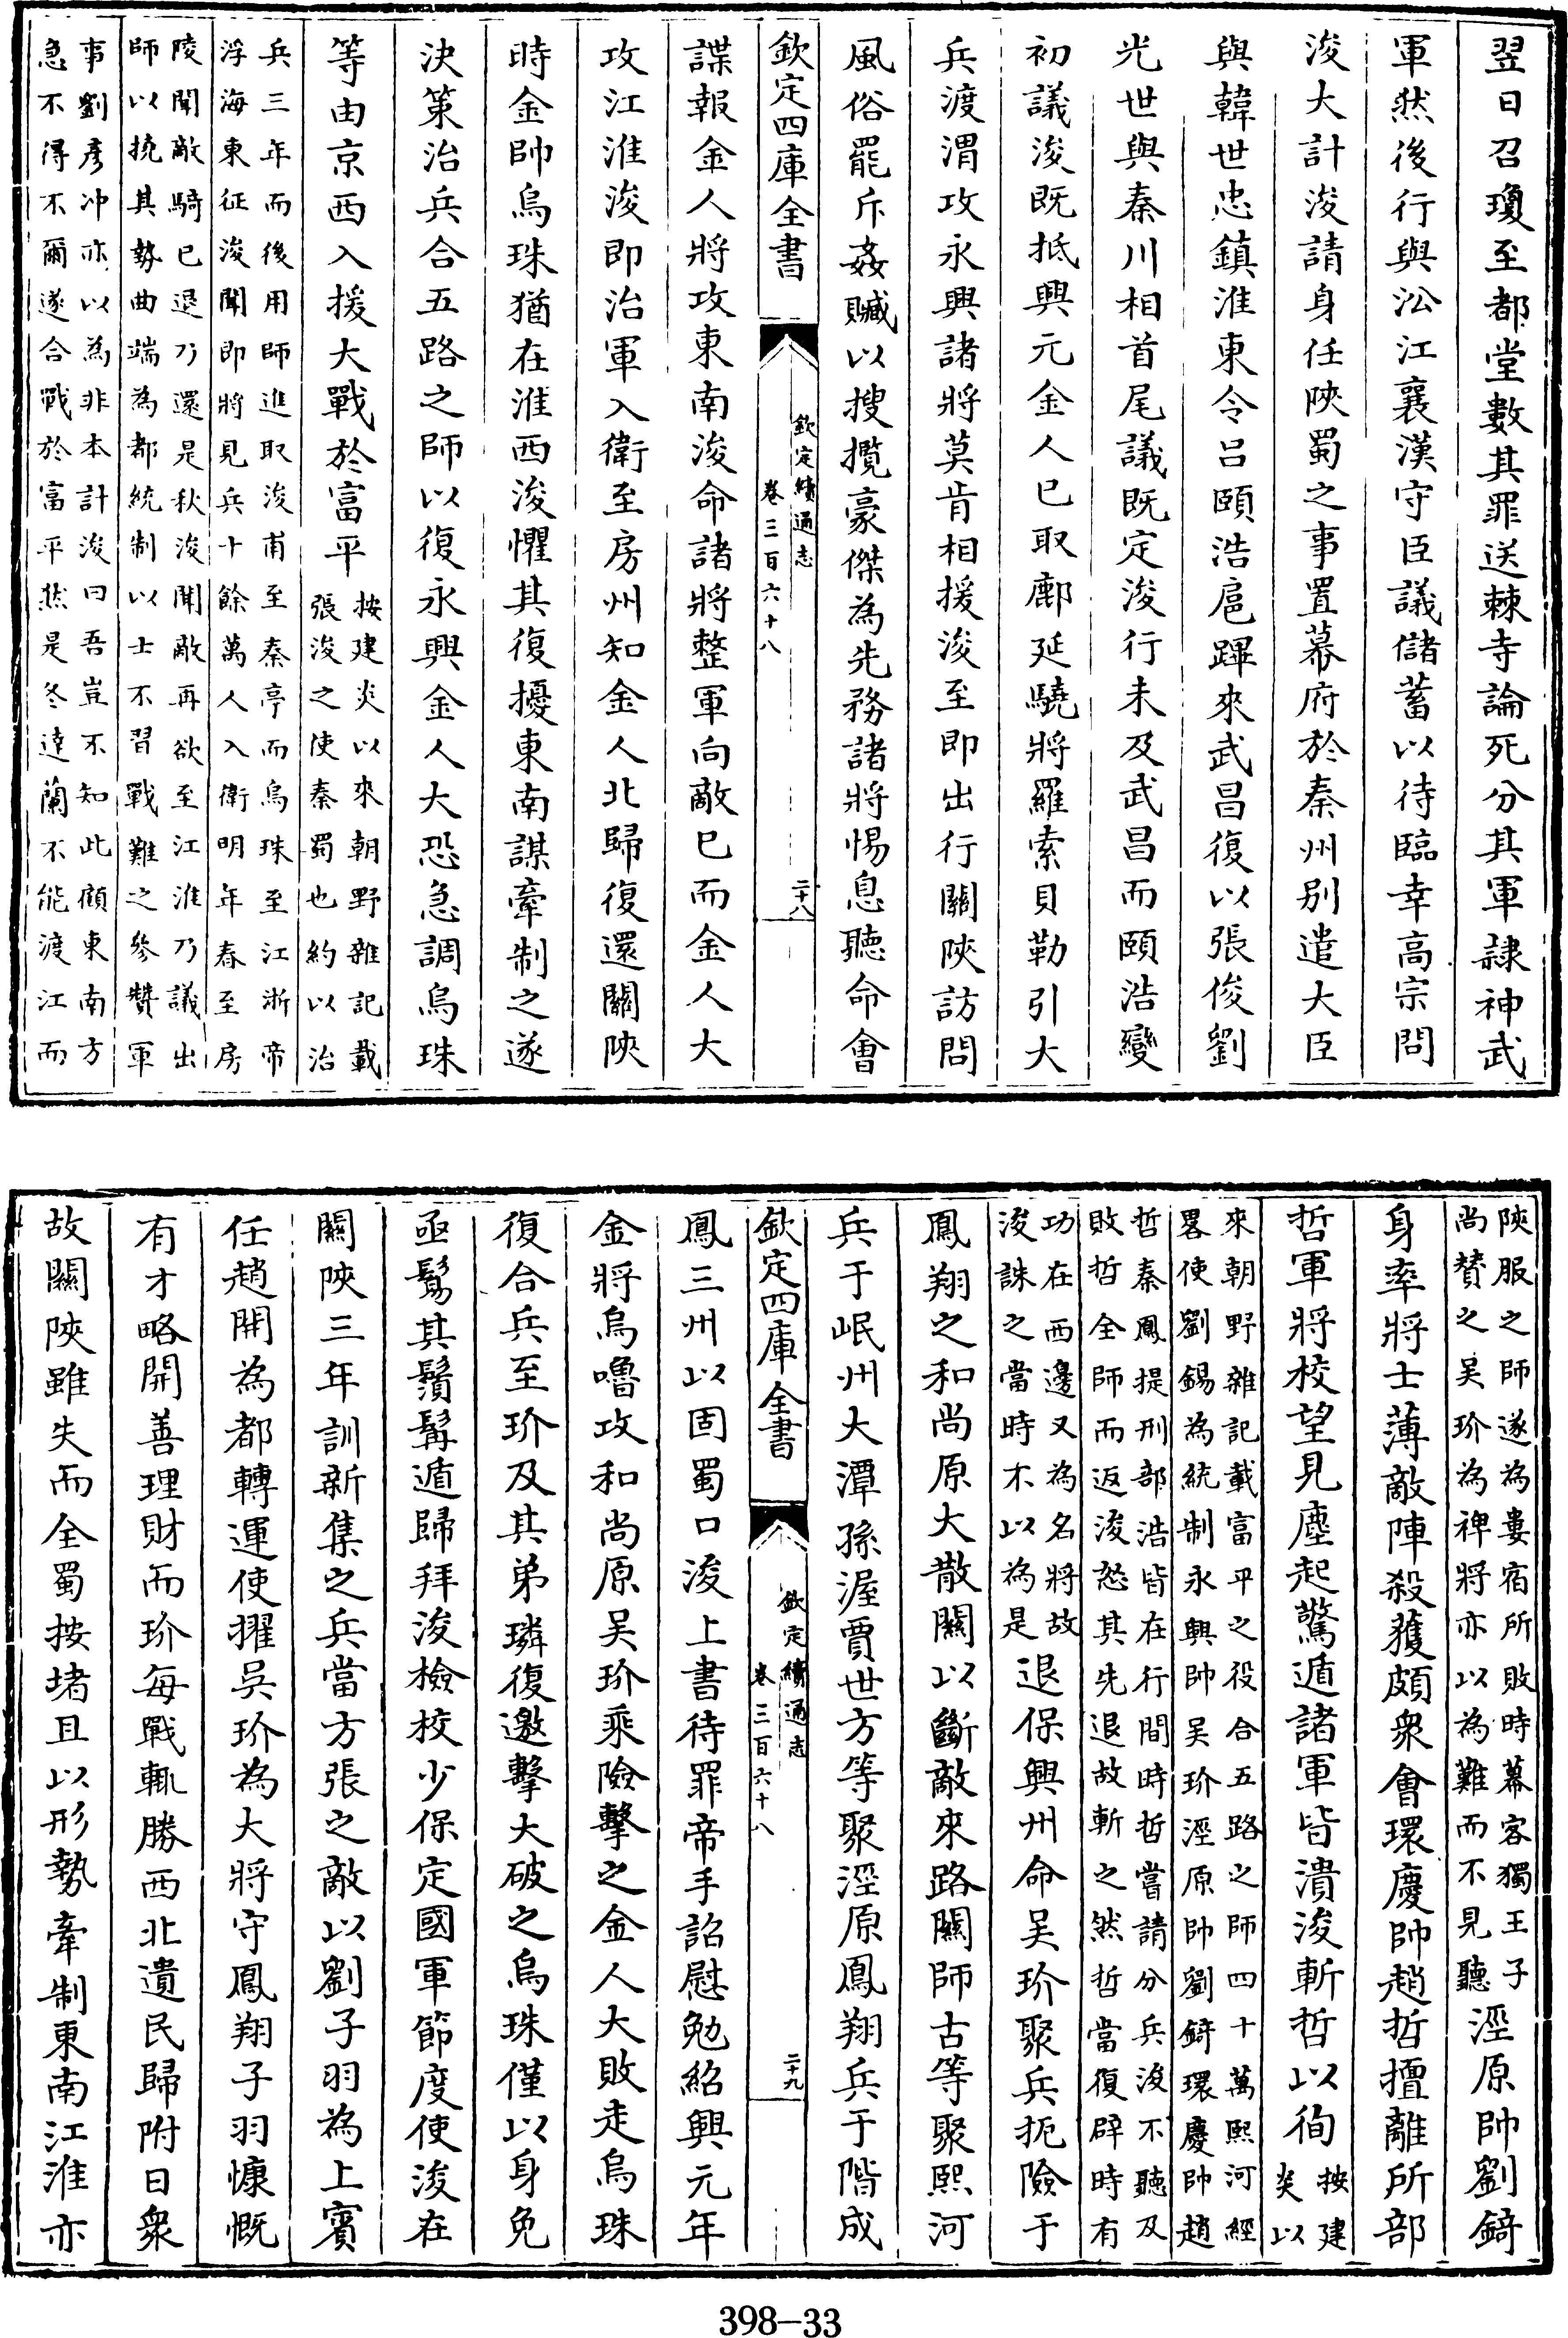 翌日召瓊至都堂數其罪送棘寺論死分其軍隸神武
軍然後行與㳂江襄漢守臣議儲蓄以待臨幸高宗問
浚大計浚請身任陜蜀之事置幕府於秦州别遣大臣
與韓世忠鎮淮東令呂頤浩扈蹕來武昌復以張俊劉
光世與秦川相首尾議既定浚行未及武昌而頤浩變
初議浚既抵興元金人已取鄜延驍將羅索貝勒引大
兵渡渭攻永興諸將莫肯相援浚至即出行關陜訪問
風俗罷斥姦贓以搜攬豪傑為先務諸將惕息聽命會
欽定四庫全書
欽定續通志
卷三百六十八
二十八
諜報金人將攻東南浚命諸將整軍向敵已而金人大
攻江淮浚即治軍入衛至房州知金人北歸復還關陜
時金帥烏珠猶在淮西浚懼其復擾東南謀牽制之遂
決策治兵合五路之師以復永興金人大恐急調烏珠
等由京西入援大戰於富平
按建炎以來朝野雜記載
張浚之使秦蜀也約以治
兵三年而後用師進取浚甫至秦亭而烏珠至江浙帝
浮海東征浚聞即將見兵十餘萬人入衛明年春至房
陵聞敵騎已退乃還是秋浚聞敵再欲至江淮乃議出
師以撓其勢曲端為都統制以士不習戰難之參贊軍
事劉彥冲亦以為非本計浚曰吾豈不知此顧東南方
急不得不爾遂合戰於富平然是冬達蘭不能渡江而
陜服之師遂為婁宿所敗時幕客獨王子
尚贊之吴玠為裨將亦以為難而不見聽
涇原帥劉錡
身率將士薄敵陣殺獲頗衆會環慶帥趙哲擅離所部
哲軍將校望見塵起驚遁諸軍皆潰浚斬哲以徇
按建
炎以
來朝野雜記載富平之役合五路之師四十萬熙河經
畧使劉錫為統制永興帥吴玠涇原帥劉錡環慶帥趙
哲秦鳳提刑部浩皆在行間時哲嘗請分兵浚不聽及
敗哲全師而返浚怒其先退故斬之然哲當復辟時有
功在西邊又為名將故
浚誅之當時不以為是
退保興州命吴玠聚兵扼險于
鳳翔之和尚原大散關以斷敵來路關師古等聚熙河
兵于岷州大潭孫渥賈世方等聚涇原鳳翔兵于階成
欽定四庫全書
欽定續通志
卷三百六十八
二十九
鳳三州以固蜀口浚上書待罪帝手詔慰勉紹興元年
金將烏嚕攻和尚原吴玠乘險擊之金人大敗走烏珠
復合兵至玠及其弟璘復邀擊大破之烏珠僅以身免
亟鬄其鬚髯遁歸拜浚檢校少保定國軍節度使浚在
關陜三年訓新集之兵當方張之敵以劉子羽為上賓
任趙開為都轉運使擢吳玠為大將守鳳翔子羽慷慨
有才略開善理財而玠每戰輒勝西北遺民歸附日衆
故關陜雖失而全蜀按堵且以形勢牽制東南江淮亦
398-33